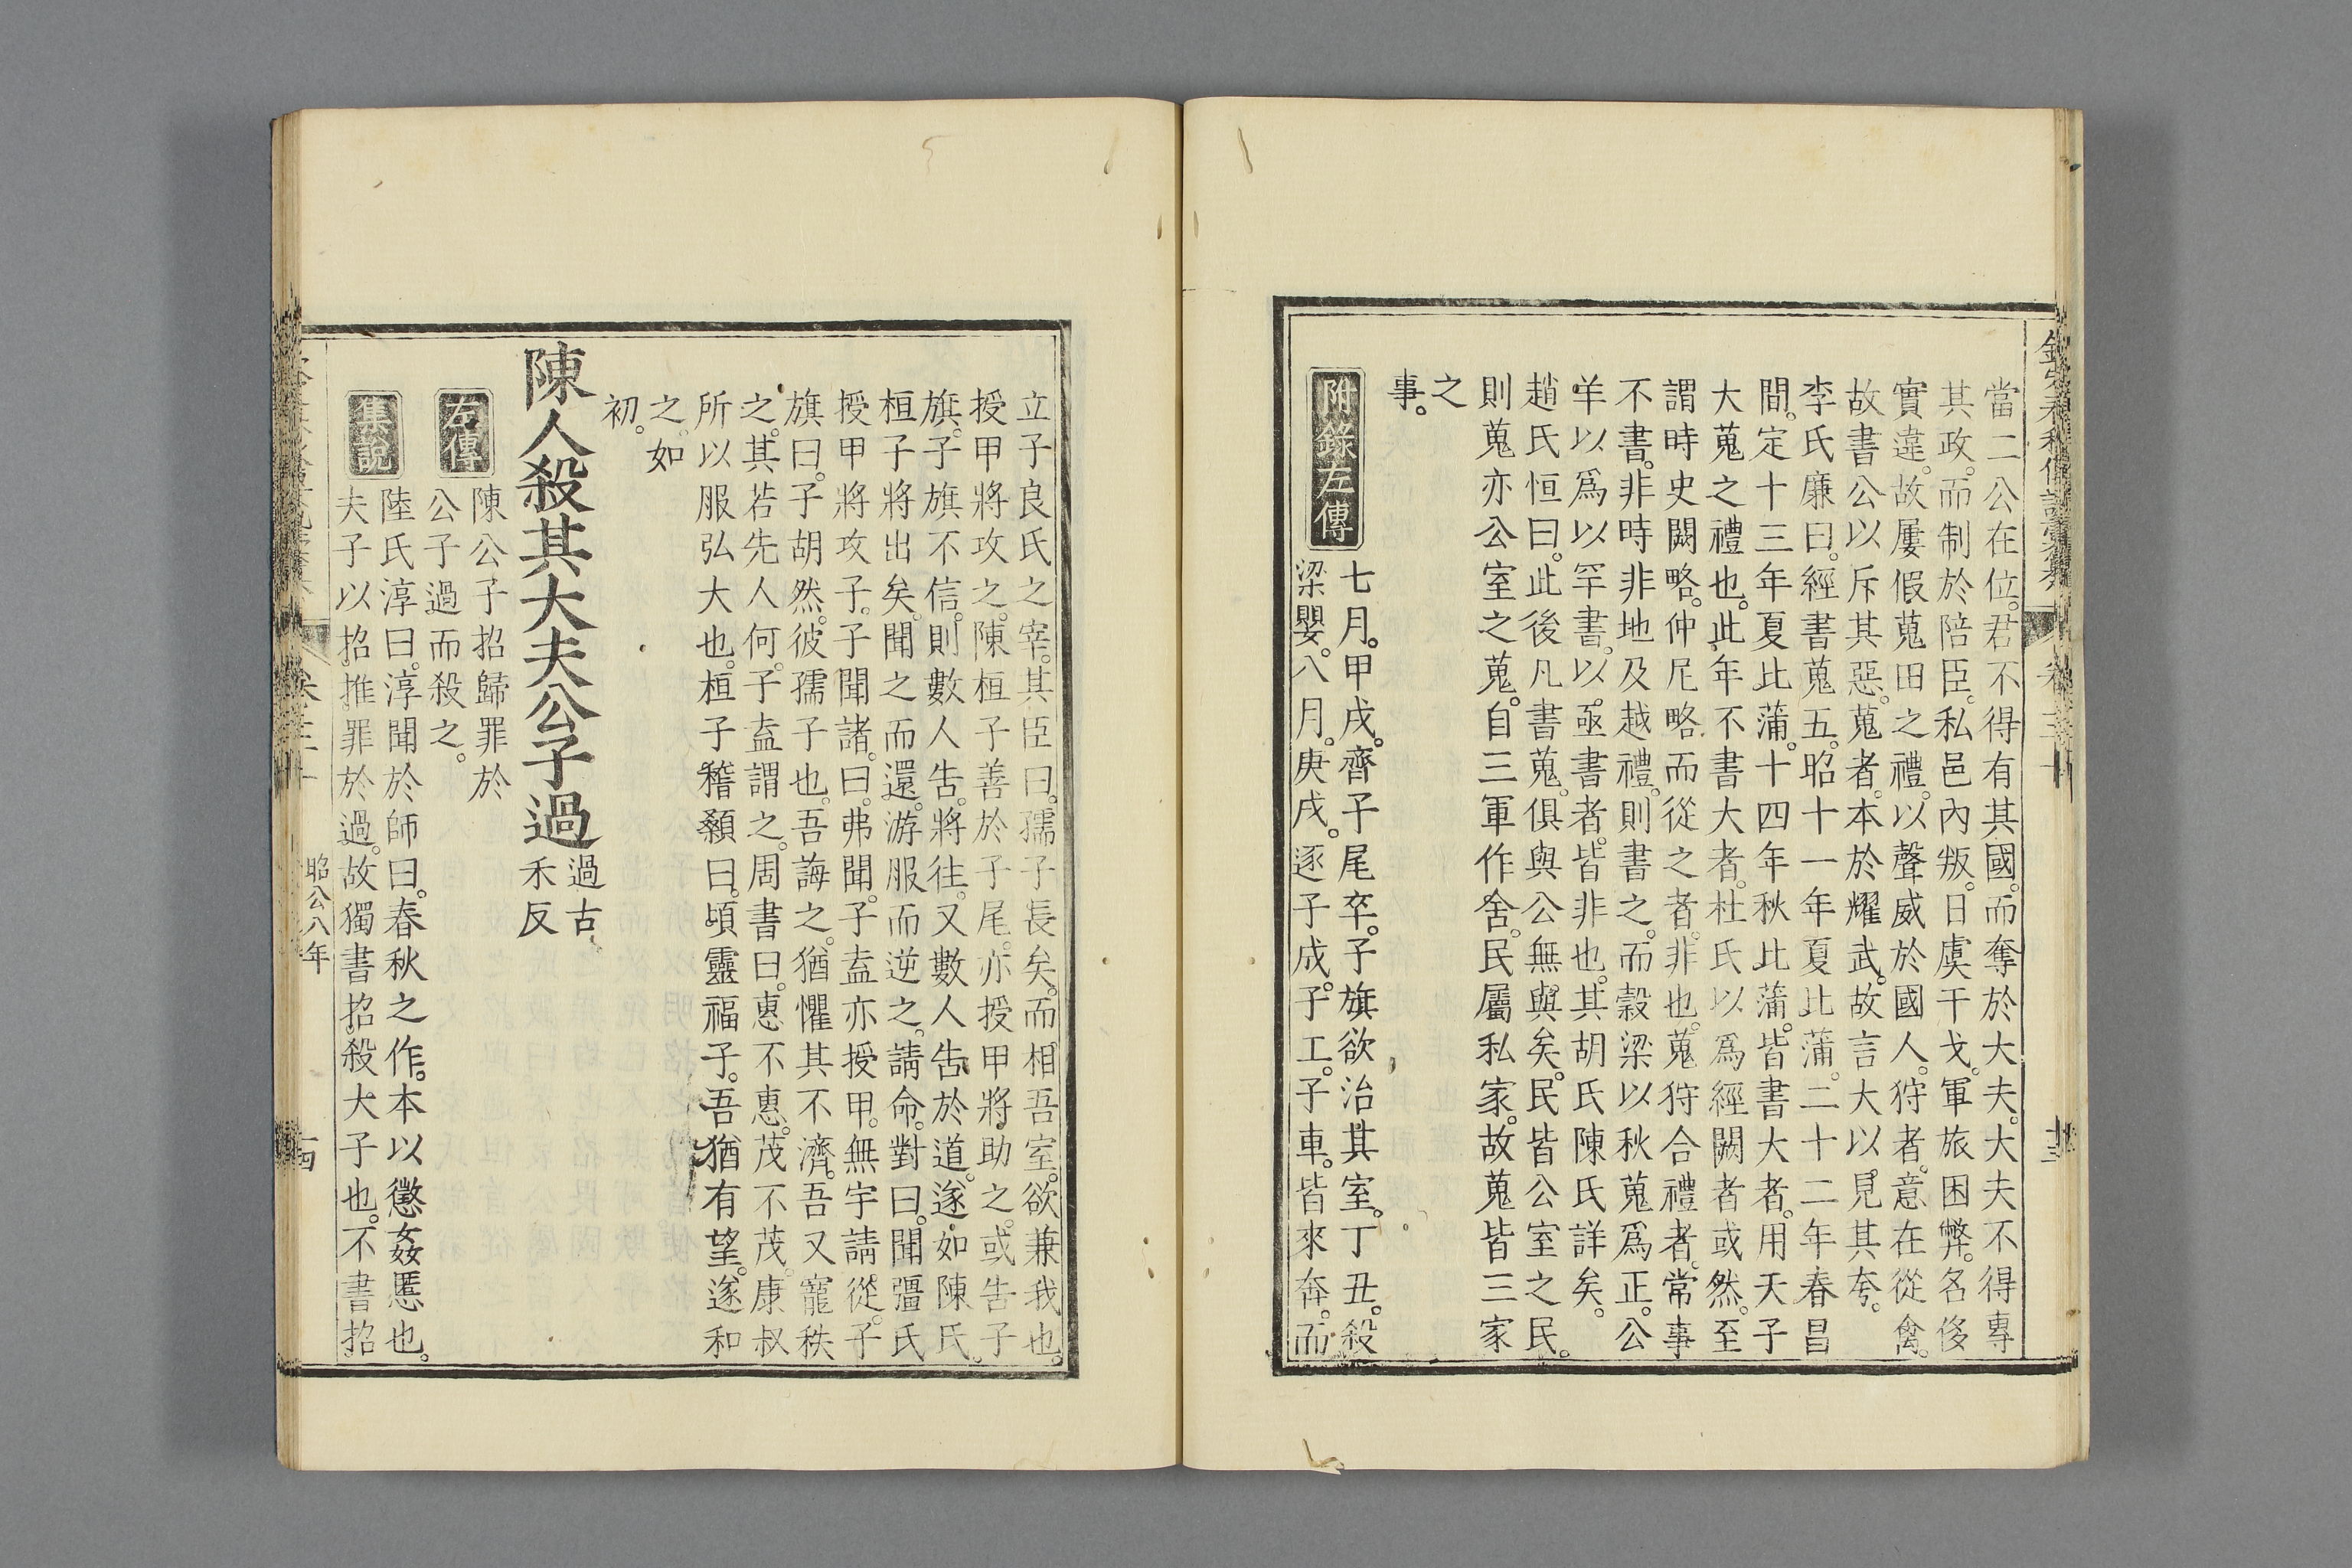 欽定春秋傳說彙纂
卷三十
十三
當二公在位。君不得有其國。而奪於大夫。大夫不得專
其政。而制於陪臣。私邑內叛。日虞干戈。軍旅困弊。名侈
實違。故屢假蒐田之禮。以聲威於國人。狩者。意在從禽。
故書公以斥其惡。蒐者。本於耀武。故言大以見其夸。
李氏廉曰。經書蒐五。昭十一年夏比蒲。二十二年春昌
間。定十三年夏比蒲。十四年秋比蒲。皆書大者。用天子
大蒐之禮也。此年不書大者。杜氏以爲經闕者或然。至
謂時史闕略。仲尼略而從之者。非也。蒐狩合禮者。常事
不書。非時非地及越禮。則書之。而穀梁以秋蒐爲正。公
羊以爲以罕書。以亟書者。皆非也。其胡氏陳氏詳矣。
趙氏恒曰。此後凡書蒐。俱與公無與矣。民皆公室之民。
則蒐亦公室之蒐。自三軍作舍。民屬私家。故蒐皆三家
之
事。
附錄左傳
七月。甲戌。齊子尾卒。子旗欲治其室。丁丑。殺
梁嬰。八月。庚戌。逐子成。子工。子車。皆來奔。而
立子良氏之宰。其臣曰。孺子長矣。而相吾室。欲兼我也。
授甲將攻之。陳桓子善於子尾。亦授甲將助之。或告子
旗。子旗不信。則數人告。將往。又數人告於道。遂如陳氏。
桓子將出矣。聞之而還。游服而逆之。請命。對曰。聞彊氏
授甲將攻子。子聞諸。曰。弗聞。子盍亦授甲。無宇請從。子
旗曰。子胡然。彼孺子也。吾誨之。猶懼其不濟。吾又寵秩
之。其若先人何。子盍謂之。周書曰。惠不惠。茂不茂。康叔
所以服弘大也。桓子稽顙曰。頃靈福子。吾猶有望。遂和
之。如
初。
陳人殺其大夫公子過
過古
禾反
左傳
陳公子招歸罪於
公子過而殺之。
集說
陸氏淳曰。淳聞於師曰。春秋之作。本以懲姦慝也。
夫子以招推罪於過。故獨書招。殺大子也。不書招
卷三十
昭公八年
十四